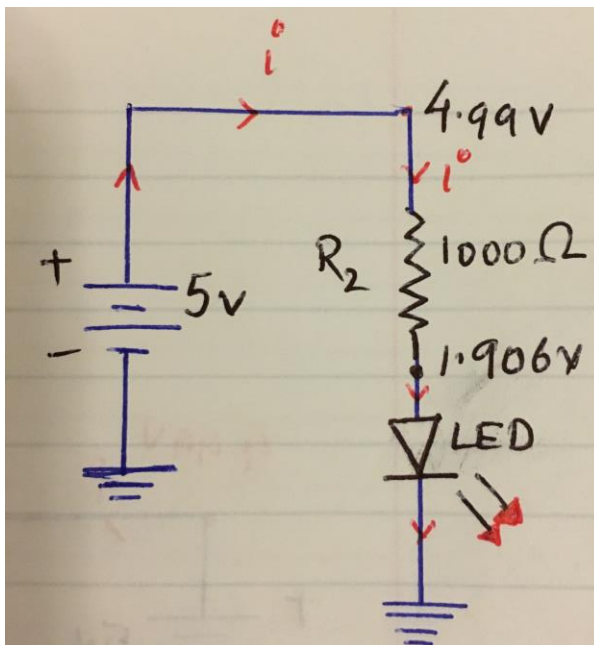 i
4.99V
i
+
5v
-
R2
1000Ω
1.906v
LED